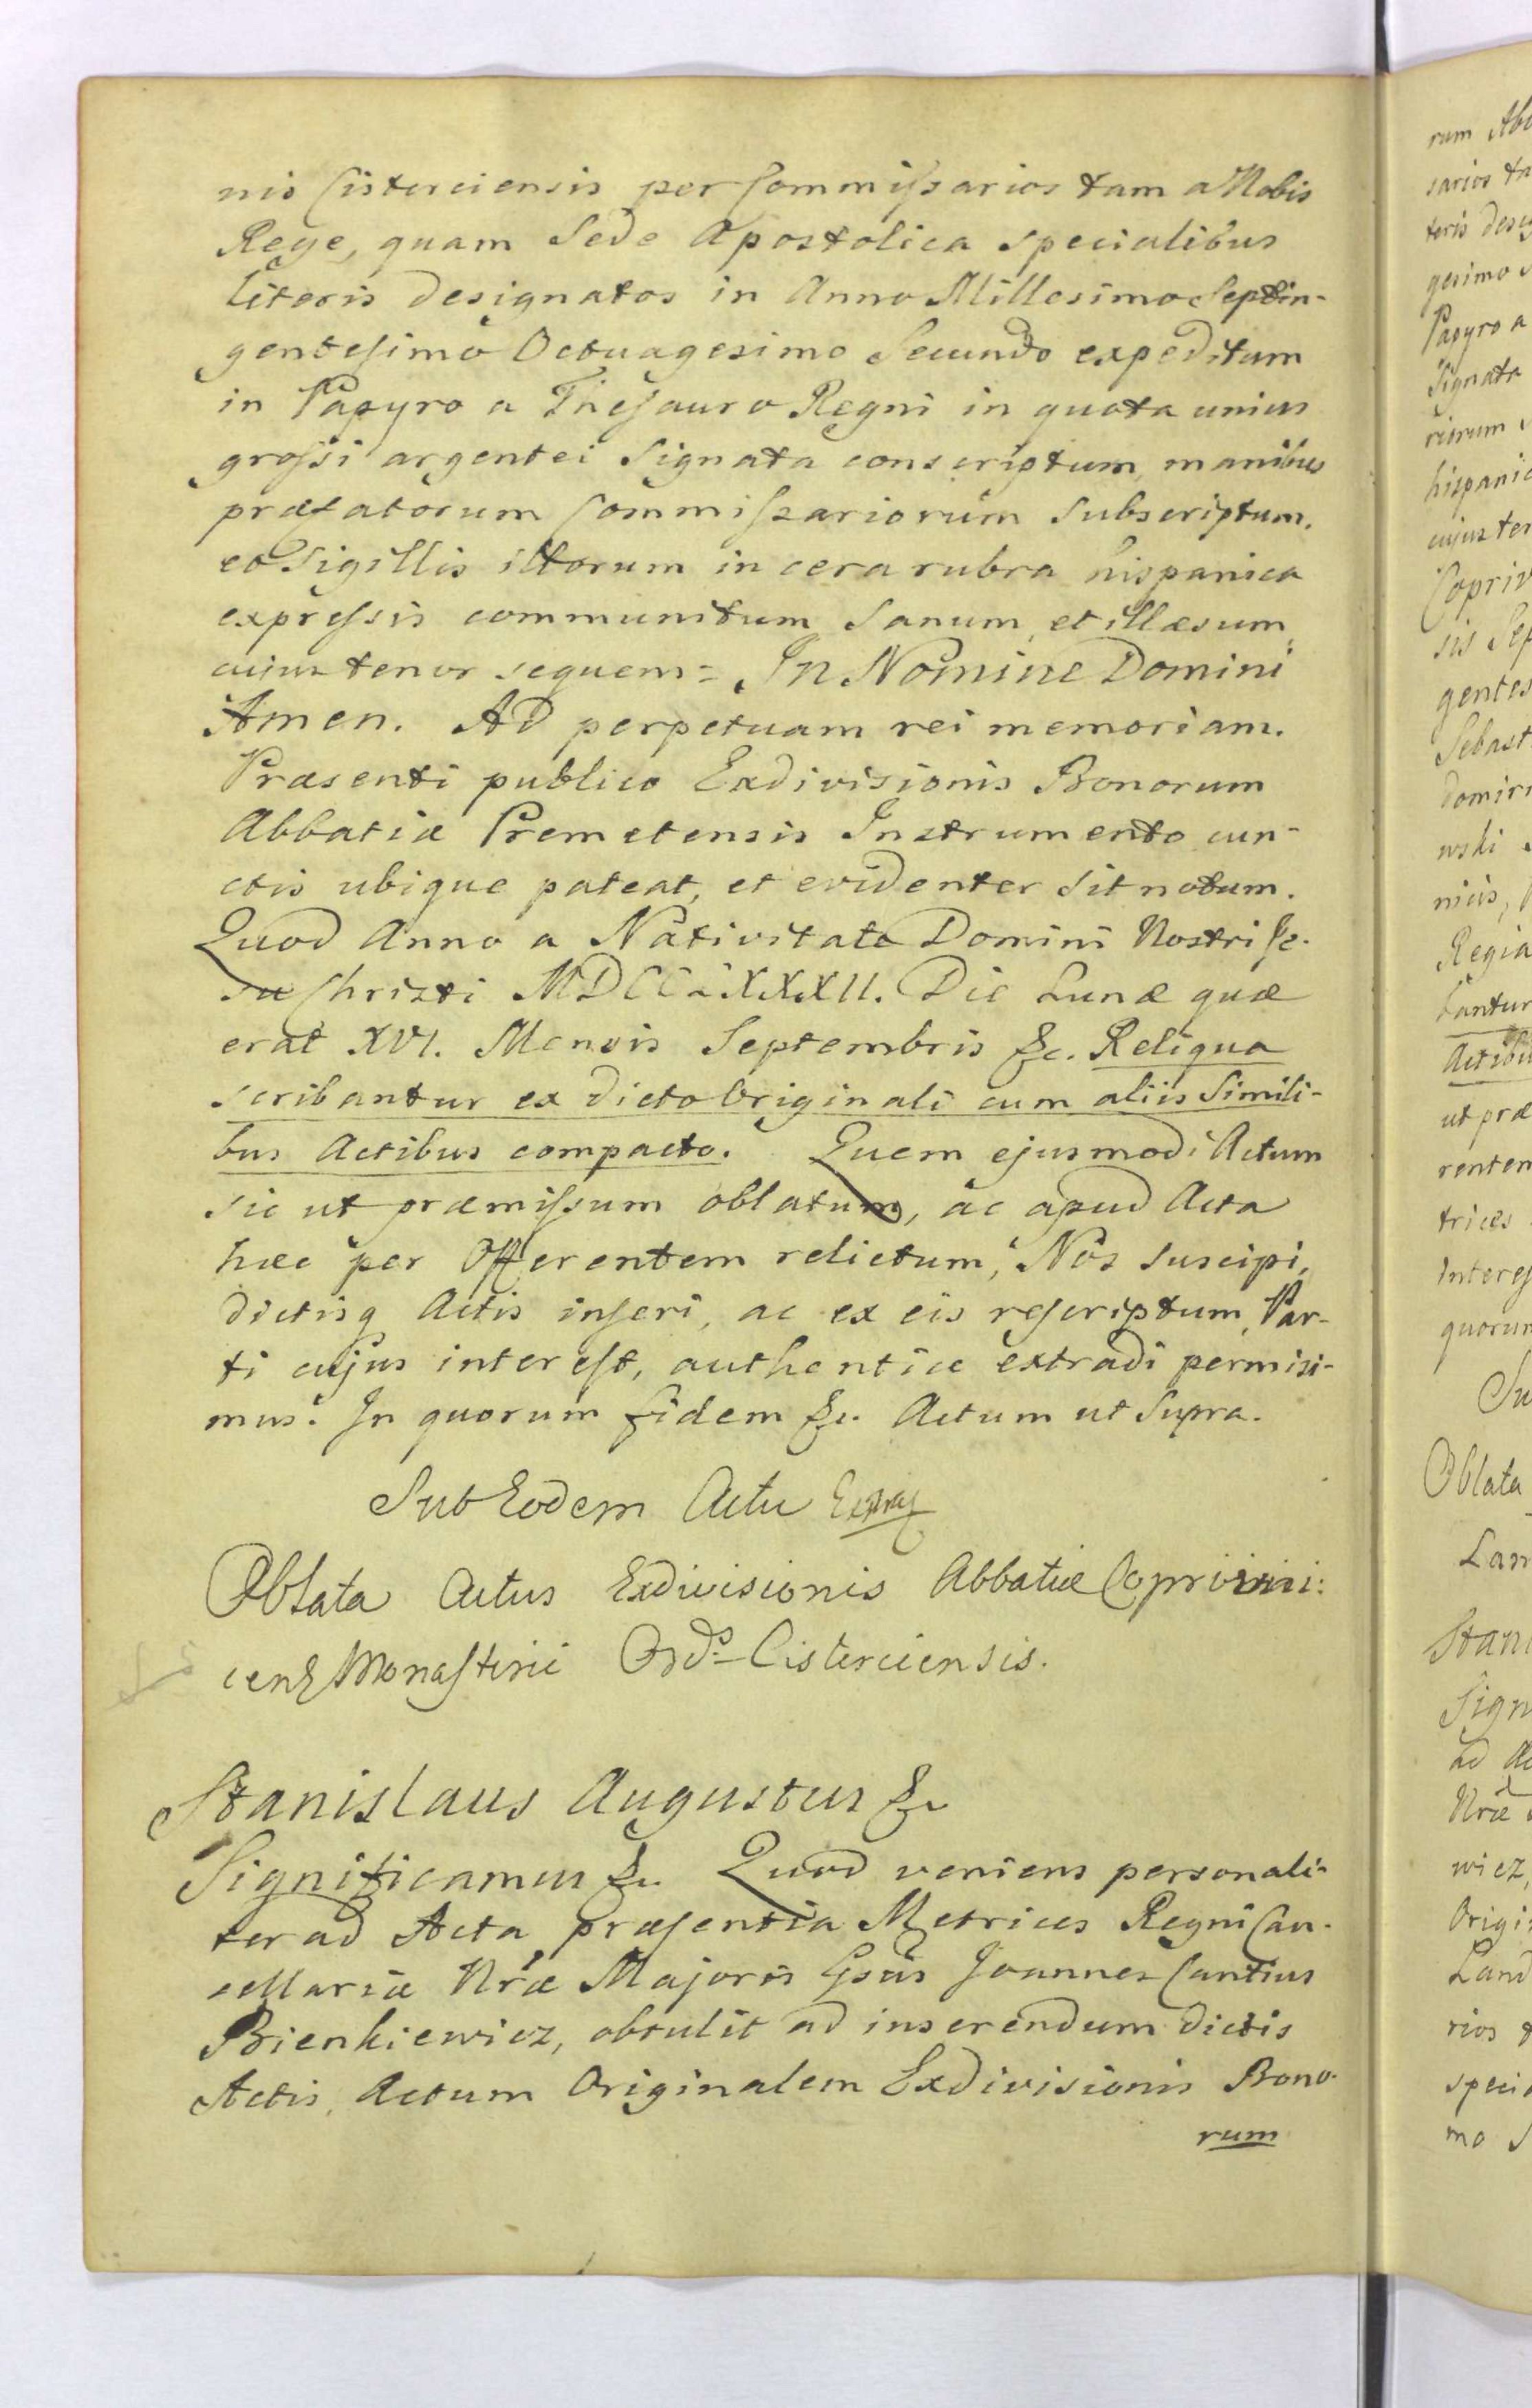 nis Cisterciensis per Commiſsarios tam a Nobis
Rege, quam Sede Apostolica specialibus
literis designatos in Anno Millesimo Septin-
genteſimo Octuagesimo Secundo expeditum
in Papyro a Theſauro Regni in quota unius
groſsi argentei Signata conscriptum, manibus
præfatorum Commiſsariorum Subscriptum.
et Sigillis illorum in cera rubra hispanica
expreſsis communitum Sanum, et illæsum,
cujus tenor sequens = In Nomine Domini
Amen. Ad perpetuam rei memoriam.
Præsenti publico Exdivisionis Bonorum
Abbatiæ Premetensis Instrumento cun-
ctis ubique pateat, et evidenter sit notum.
Quod Anno a Nativitate Domini Nostri Je-
su Christi MDCCLXXXII. Die Lunæ quæ
erat XVI. Mensis Septembris &c. Reliqua
scribantur ex dicto Originali cum aliis Simili-
bus Actibus compacto. Quem ejusmodi Actum
sic ut præmiſsum oblatum, ac apud Acta
hæc per Offerentem relictum, Nos suscipi,
dictisq Actis inſeri, ac ex eis reſcriptum, Par-
ti cujus intereſt, authentice extradi permisi-
mus. In quorum fidem &c. Actum ut Supra.
Sub Eodem Actu
Oblata Actus Exdivisionis Abbatiæ Coprivni:
cens Monaſterii Ord: Cisterciensis.
Stanislaus Augustus &c
Significamus &c. Quod veniens personali-
ter ad Acta præſentia Metrices Regni Can-
cellariæ Nræ Majoris Gsus Joannes Cantius
Bienkiewicz, obtulit ad inserendum dictis
Actis, Actum Originalem Exdivisionis Bono-
rum
rum Ab
sarios ta
teris desig
gesimo
Papyro a
Signata
riorum
hispanic
cujus ter
Copriv
sis Sep
gentes
Sebast
domini
wski
nicis,
Regia
bantur
Actibu
ut præ
renten
trices
Intereſ
quorum
Su
Oblata
Lan
Stani
Sign
ad Ac
Nræ
wicz,
Origi
Land
rios
speci
mo S